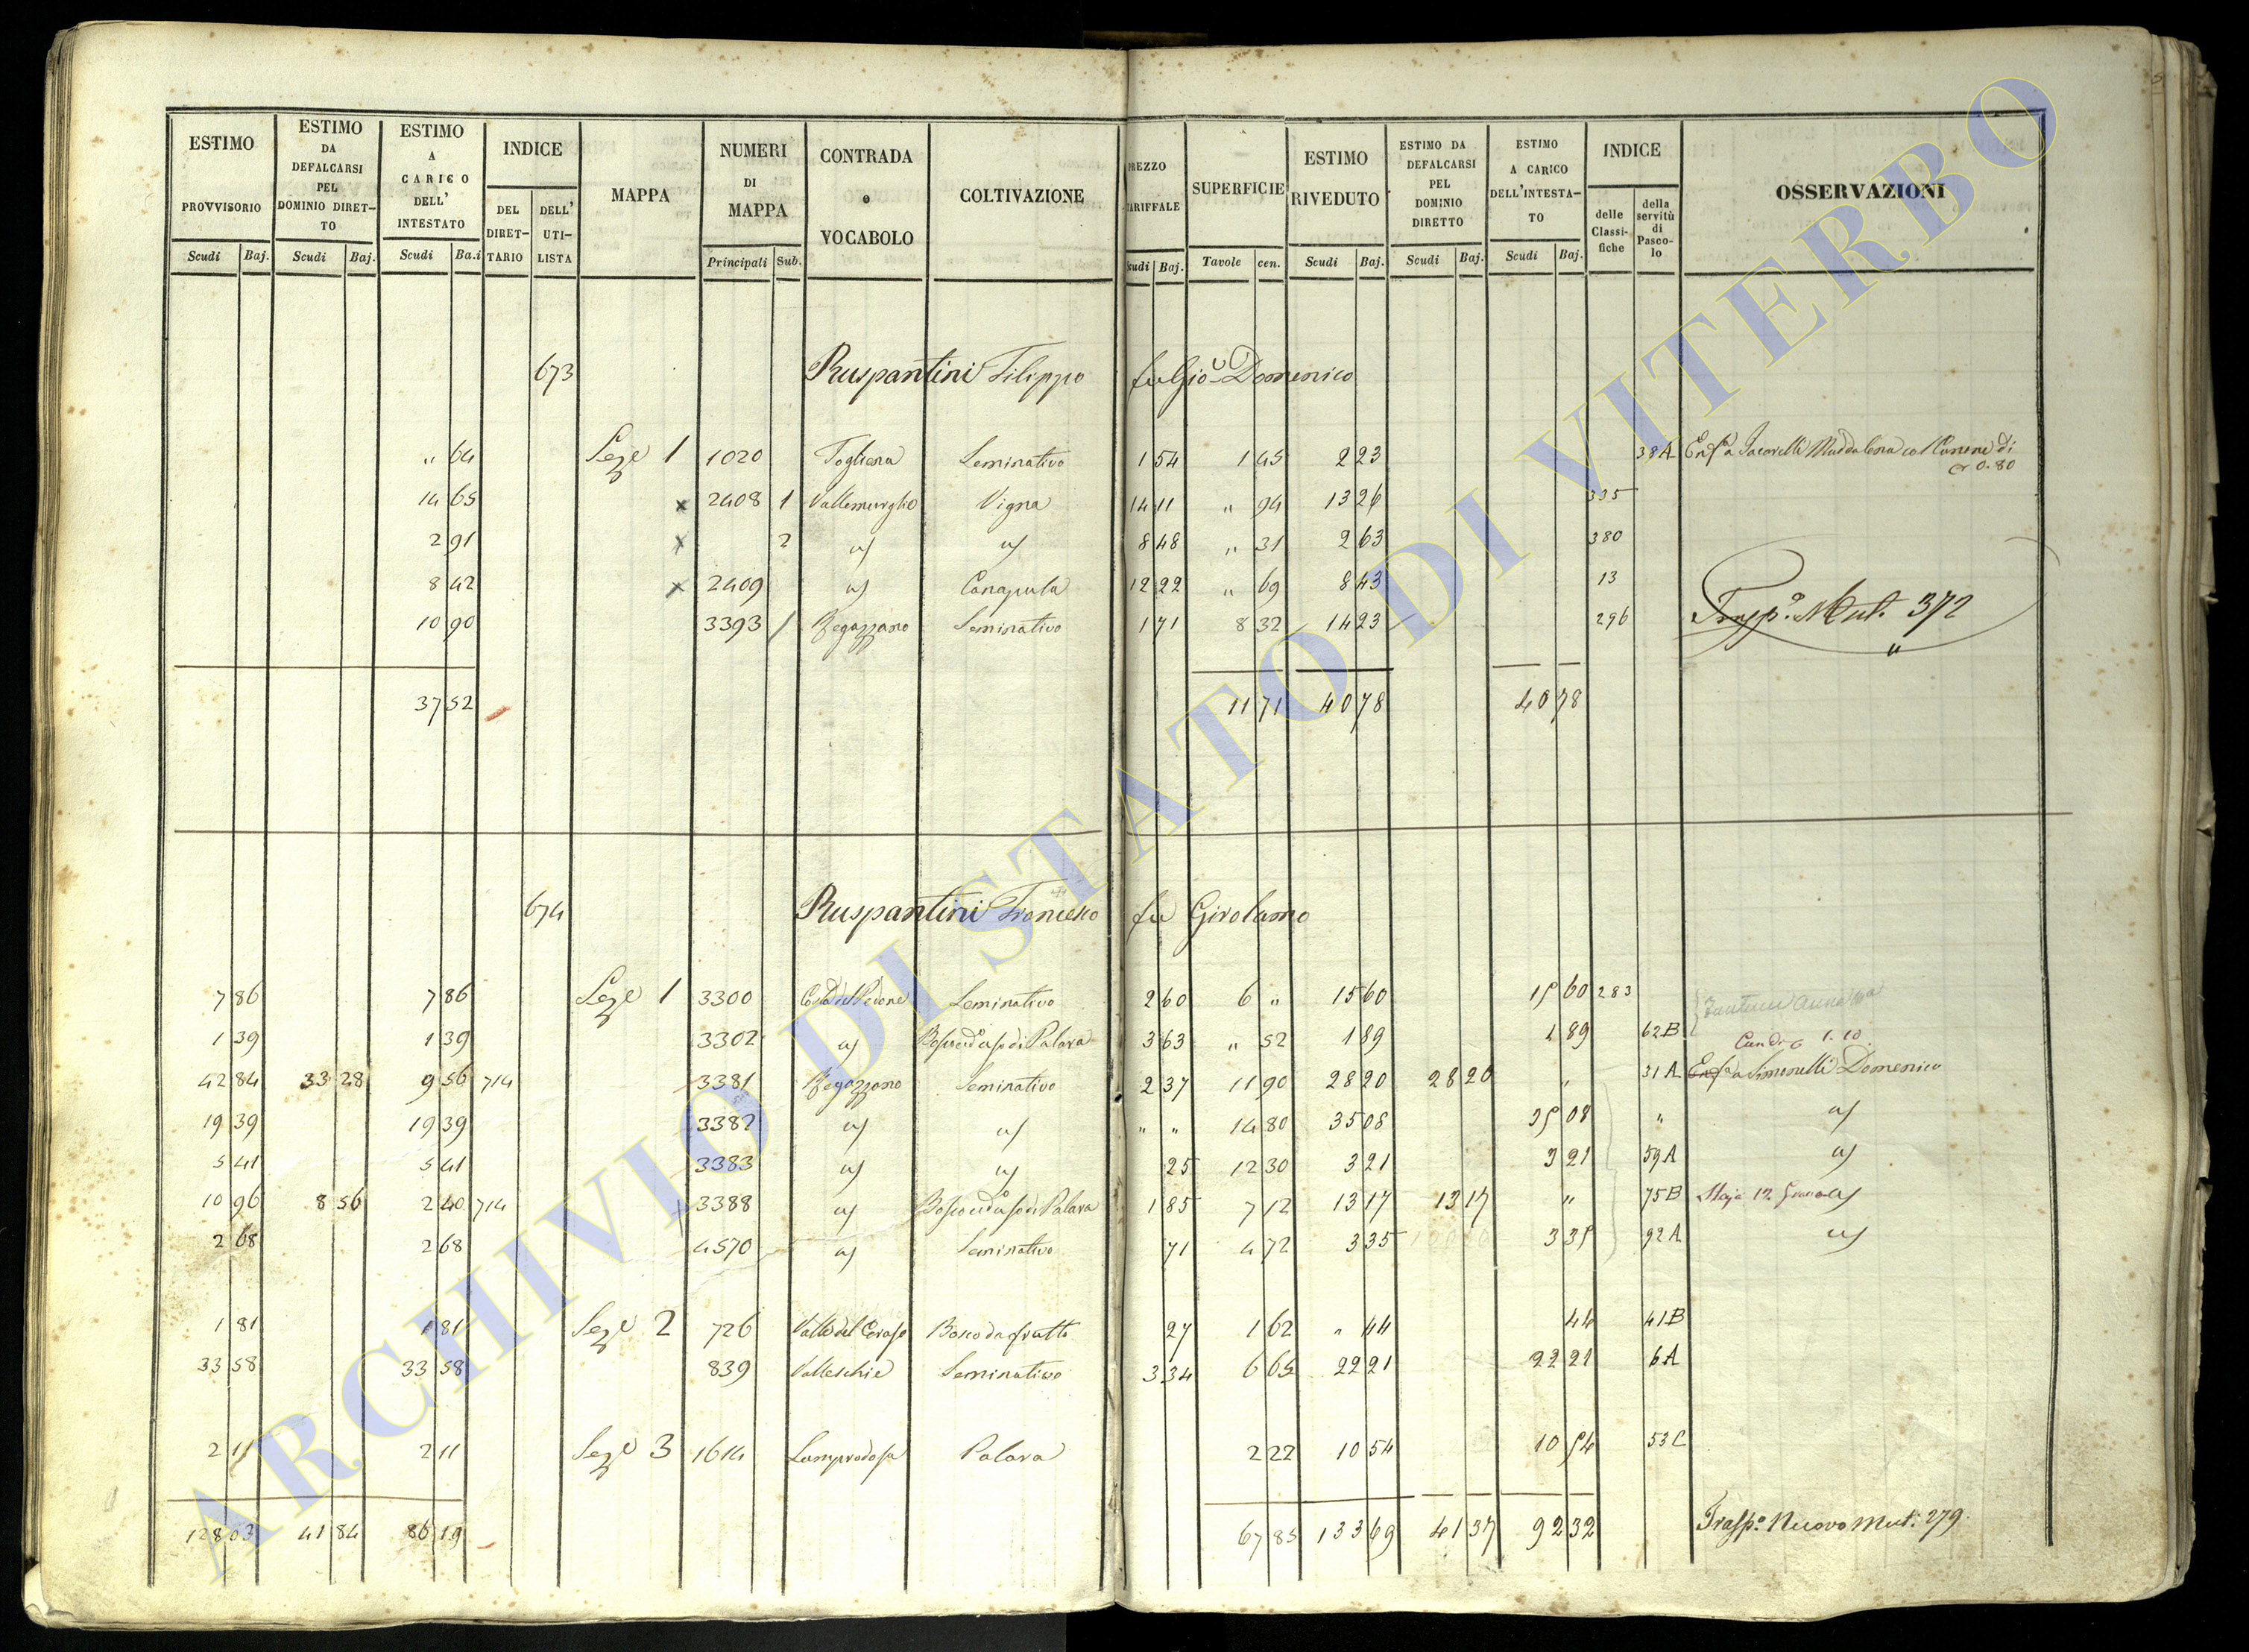 ESTIMO PROVVISORIO Scudi Baj.
ESTIMO DA DEFALCARSI PEL DOMINIO DIRET-TO Scudi Baj.
ESTIMO A CARICO DELL' INTESTATO Scudi Ba.i
INDICE DEL DIRET-TARIO DELL' UTI-LISTA
MAPPA
NUMERI DI MAPPA Principali Sub.
CONTRADA o VOCABOLO
COLTIVAZIONE
PREZZO TARIFFALE Scudi Baj.
SUPERFICIE Tavole cen.
ESTIMO RIVEDUTO Scudi Baj.
ESTIMO DA DEFALCARSI PEL DOMINIO DIRETTO Scudi Baj.
ESTIMO A CARICO DELL'INTESTA-TO Scudi Baj.
INDICE delle Classi-fiche della servitù di Pasco-lo
OSSERVAZIONI
673 Ruspantini Filippo fu Gio Domenico
" 64 Seze 1 1020 Seminativo 1 54 1 45 2 23 38A Enfa Jacovelli Maddalena col Canone di 0.80
14 65 x 2408 1 Vigna 14 11 " 94 13 26 335
2 91 x 2 8 48 " 31 2 63 380
8 42 x 2409 Canapula 12 22 " 69 8 43 13
10 90 3393 / Seminativo 1 71 8 32 14 23 296 Trasp.o Mut. 372
37 52 11 71 40 78 40 78
674 Ruspantini Francesco fu Girolamo
7 86 7 86 Seze 1 3300 Seminativo 2 60 6 " 15 60 15 60 283
1 39 1 39 3302 3 63 " 52 1 89 1 89 62B 1.10
42 84 33 28 9 56 714 3381 Seminativo 2 37 11 90 28 20 28 20 " 31A Enfa a Simonelli Domenico
19 39 19 39 3382 " " 14 80 35 08 35 08 "
5 41 5 41 3383 25 12 30 3 21 3 21 59A
10 96 8 56 2 40 714 3388 1 85 7 12 13 17 13 17 " 75B
2 68 2 68 4570 Seminativo 71 4 72 3 35 3 35 92A
1 81 1 81 Seze 2 726 Valle del Ceraso Bosco da frutto 27 1 62 " 44 44 41B
33 58 33 58 839 Valleschie Seminativo 3 34 6 65 22 21 22 21 6A
2 11 2 11 Seze 3 1614 2 22 10 54 10 54 53C
128 03 41 84 86 19 67 85 133 69 41 37 92 32 Trasp.o Nuovo Mut. 279
ARCHIVIO DI STATO DI VITERBO